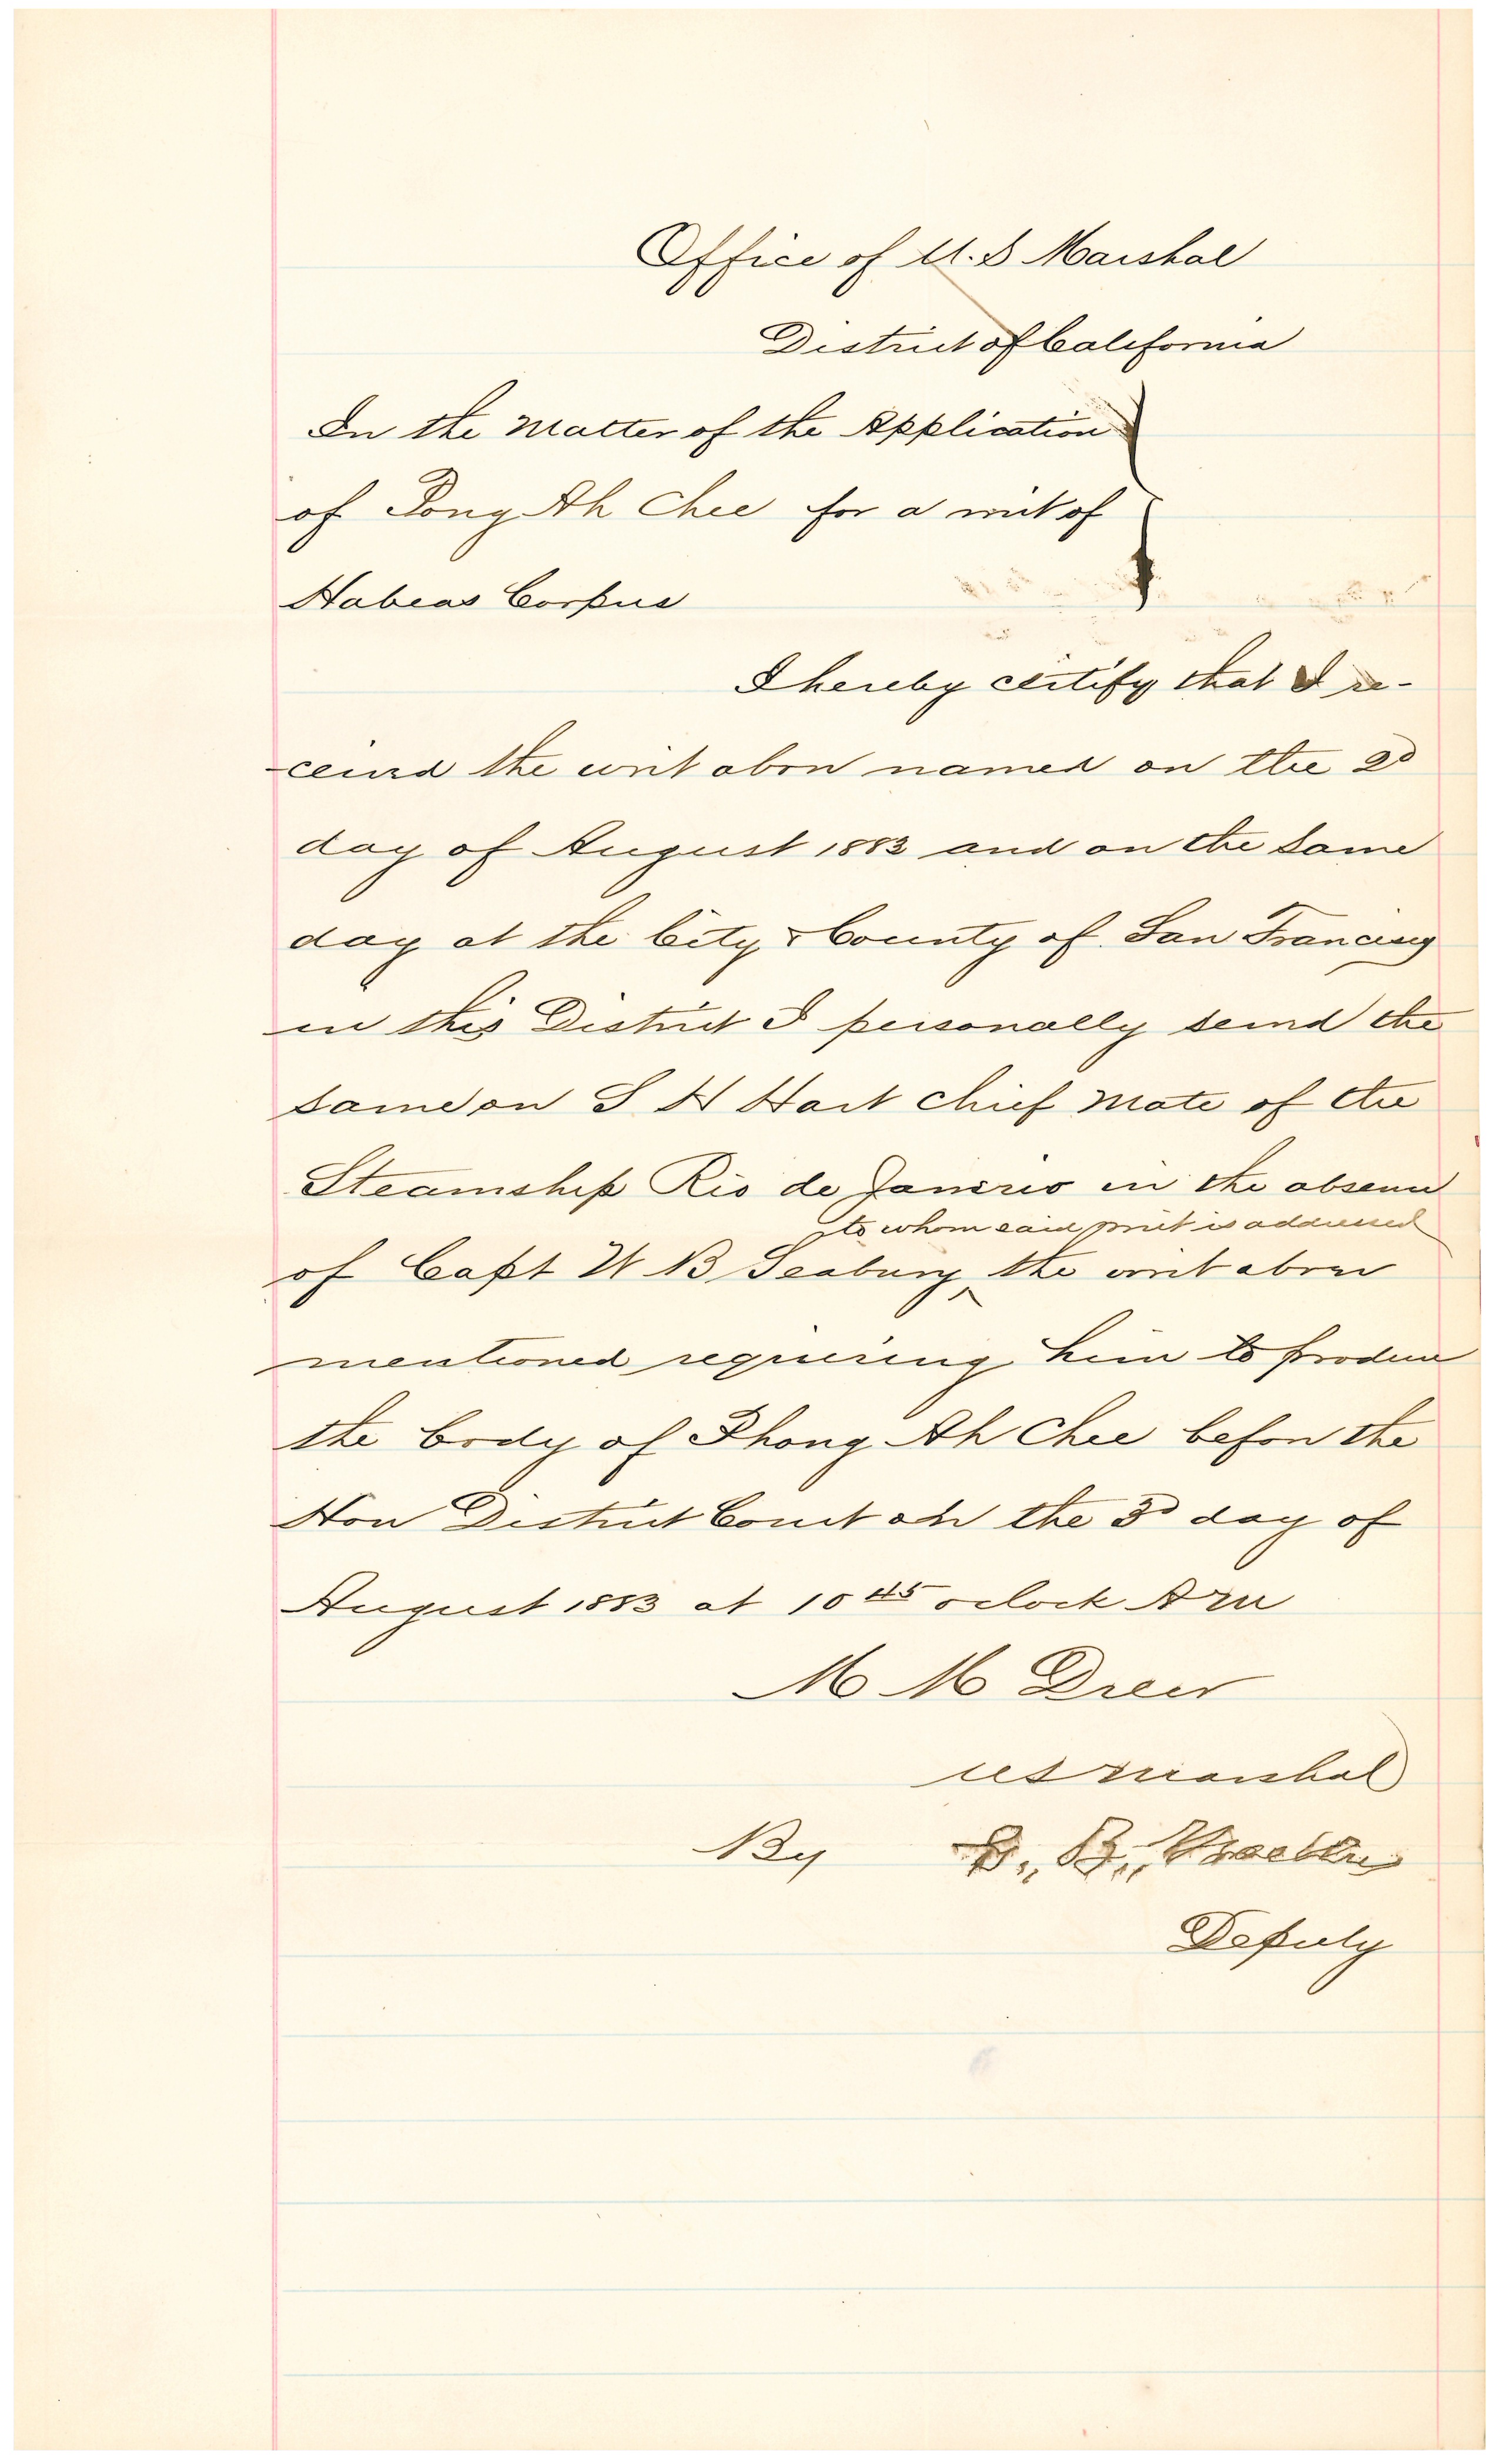 Office of U.S Marshal
District of California
In the Matter of the Application
of Pong Ah Chee for a writ of
Habeas Corpus
I hereby certify that I re-
-ceived the writ above named on the 2d
day of August 1883 and on the same
day at the City & County of San Francisco
in this District I personally served the
same on S H Hart chief Mate of the
Steamship Rio de Janeiro in the absence
to whom said writ is addressed
of Capt W B Seabury the writ above
mentioned requiring him to produce
the body of Phong Ah Chee before the
Hon District Court on the 3d day of
August 1883 at 10 45 oclock Am
M M Drew
US Marshal
By
Deputy